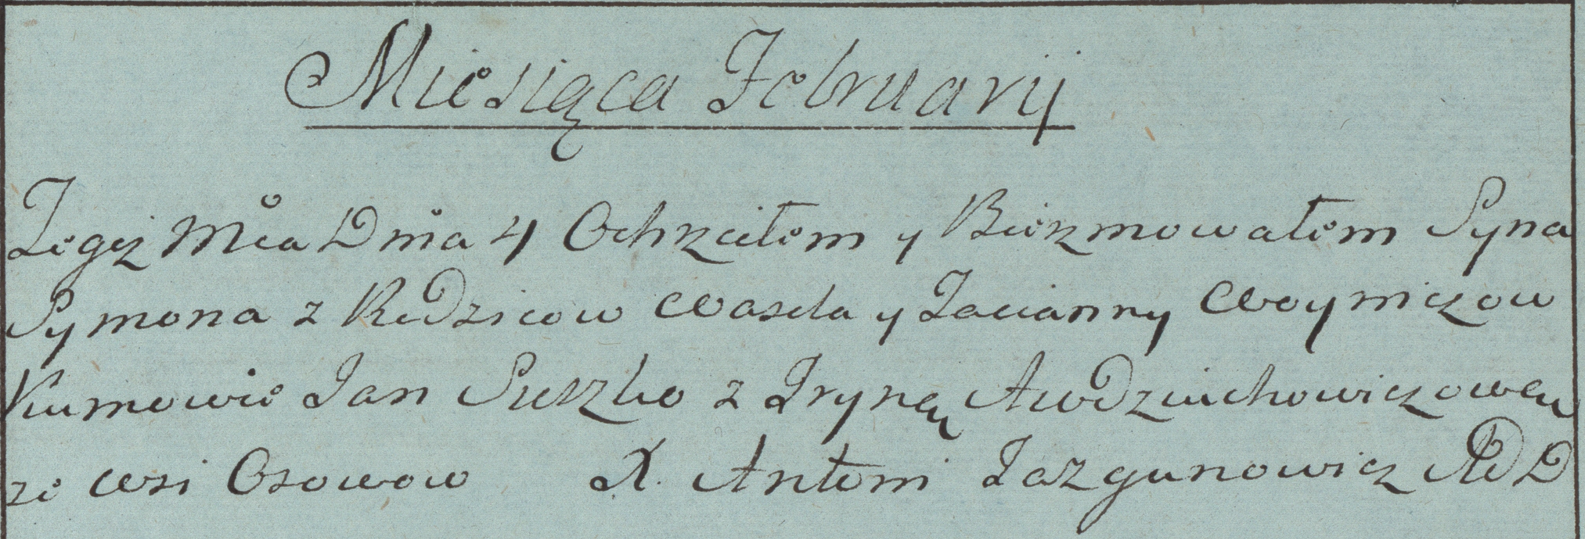 Miesiąca Februarij
Tegoż Mca Dnia 4 Ochrzciłem y Bierzmowałem Syna
Symona z Rodzicow Wasila y Tacianny Woyniczow
Kumowie Jan Suszko z Iryną Awdziuchowiczową
ze wsi Osowow X. Antoni Jazgunowicz